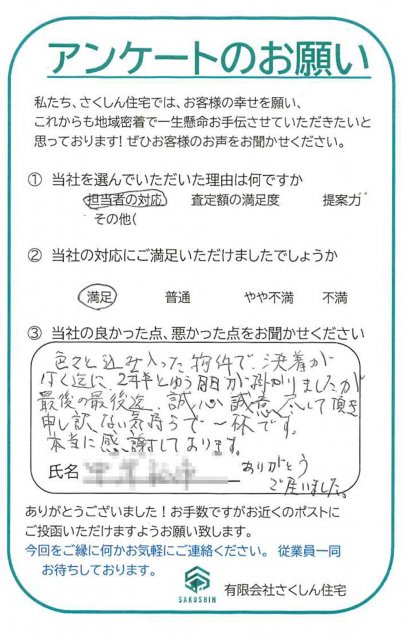 アンケートのお願い
私たち、さくしん住宅では、お客様の幸せを願い、
これからも地域密着で一生懸命お手伝させていただきたいと
思っております!ぜひお客様のお声をお聞かせください。
① 当社を選んでいただいた理由は何ですか
担当者の対応 査定額の満足度 提案力
その他(
② 当社の対応にご満足いただけましたでしょうか
満足 普通 やや不満 不満
③ 当社の良かった点、悪かった点をお聞かせください
色々と込み入った物件で、決着が
付く迄に、2年半とゆう月日が掛かりましたが
最後の最後迄、誠心誠意尽して頂き
申し訳ない気持ちで一杯です。
本当に感謝しております。
ありがとう
ございました。
氏名
ありがとうございました!お手数ですがお近くのポストに
ご投函いただけますようお願い致します。
今回をご縁に何かお気軽にご連絡ください。 従業員一同
お待ちしております。
SAKUSHIN
有限会社さくしん住宅